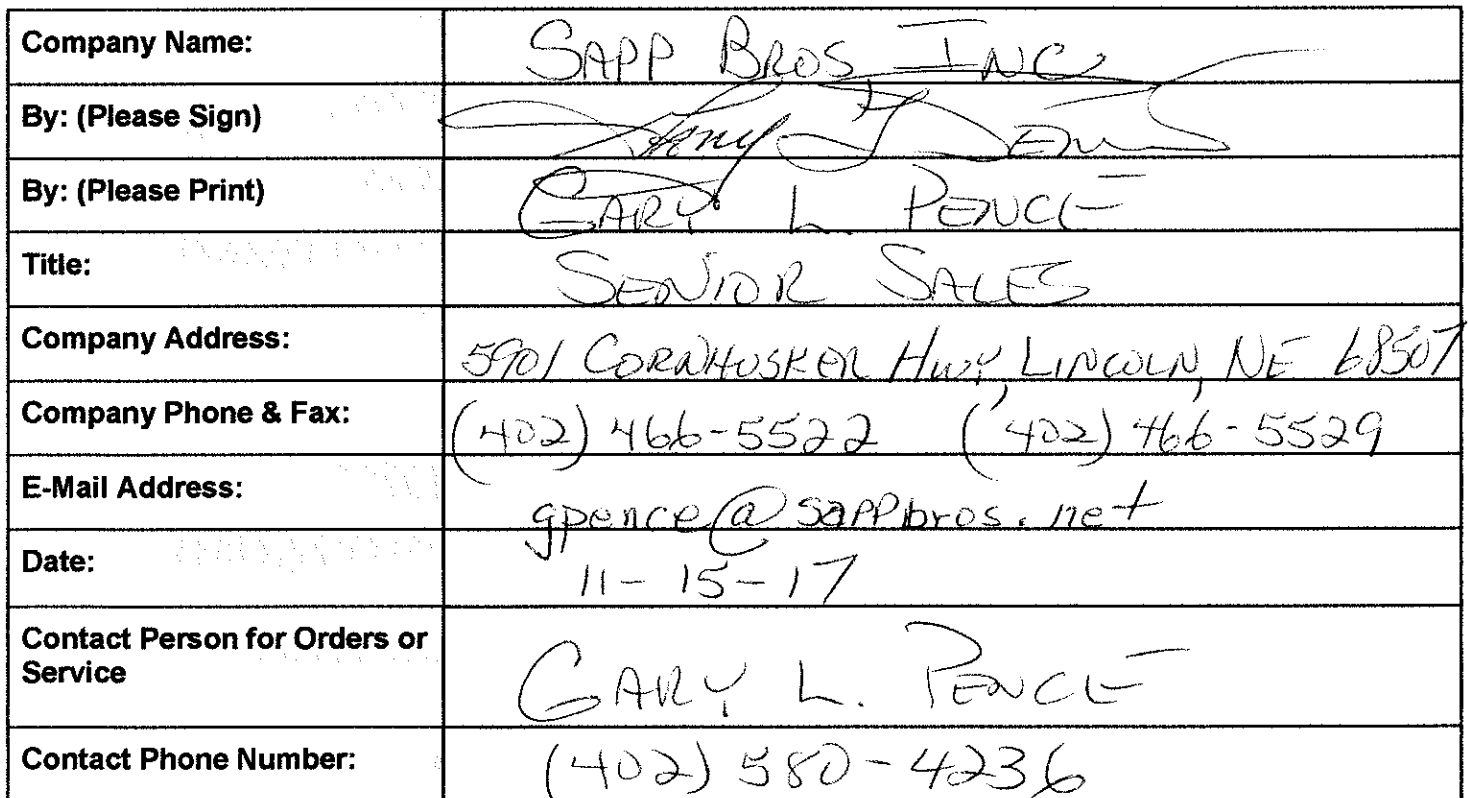 Company Name: SAPP BROS, INC
By: (Please Sign)
By: (Please Print) GARY L. PENCE
Title: SENIOR SALES
Company Address: 5901 CORNHUSKER HWY, LINCOLN, NE 68507
Company Phone & Fax: (402) 466-5522 (402) 466-5529
E-Mail Address: gpence@sappbros.net
Date: 11-15-17
Contact Person for Orders or
Service GARY L. PENCE
Contact Phone Number: (402) 580-4236